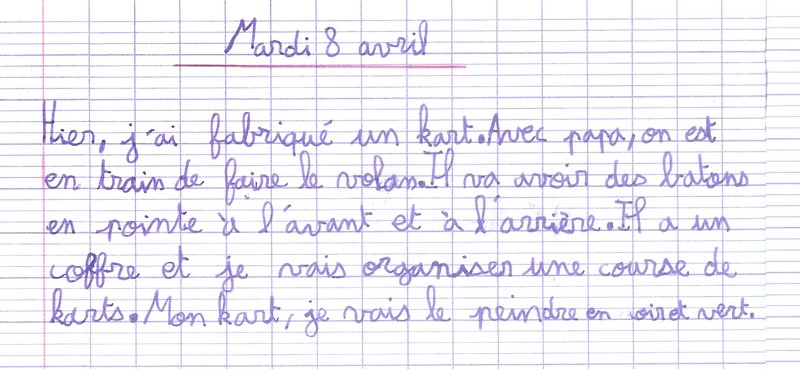 Mardi 8 avril
Hier, j'ai fabriqué un kart. Avec papa, on est
en train de faire le volan. Il va avoir des batons
en pointe à l'avant et à l'arrière. Il a un
coffre et je vais organiser une course de
karts. Mon kart, je vais le peindre en oir et vert.